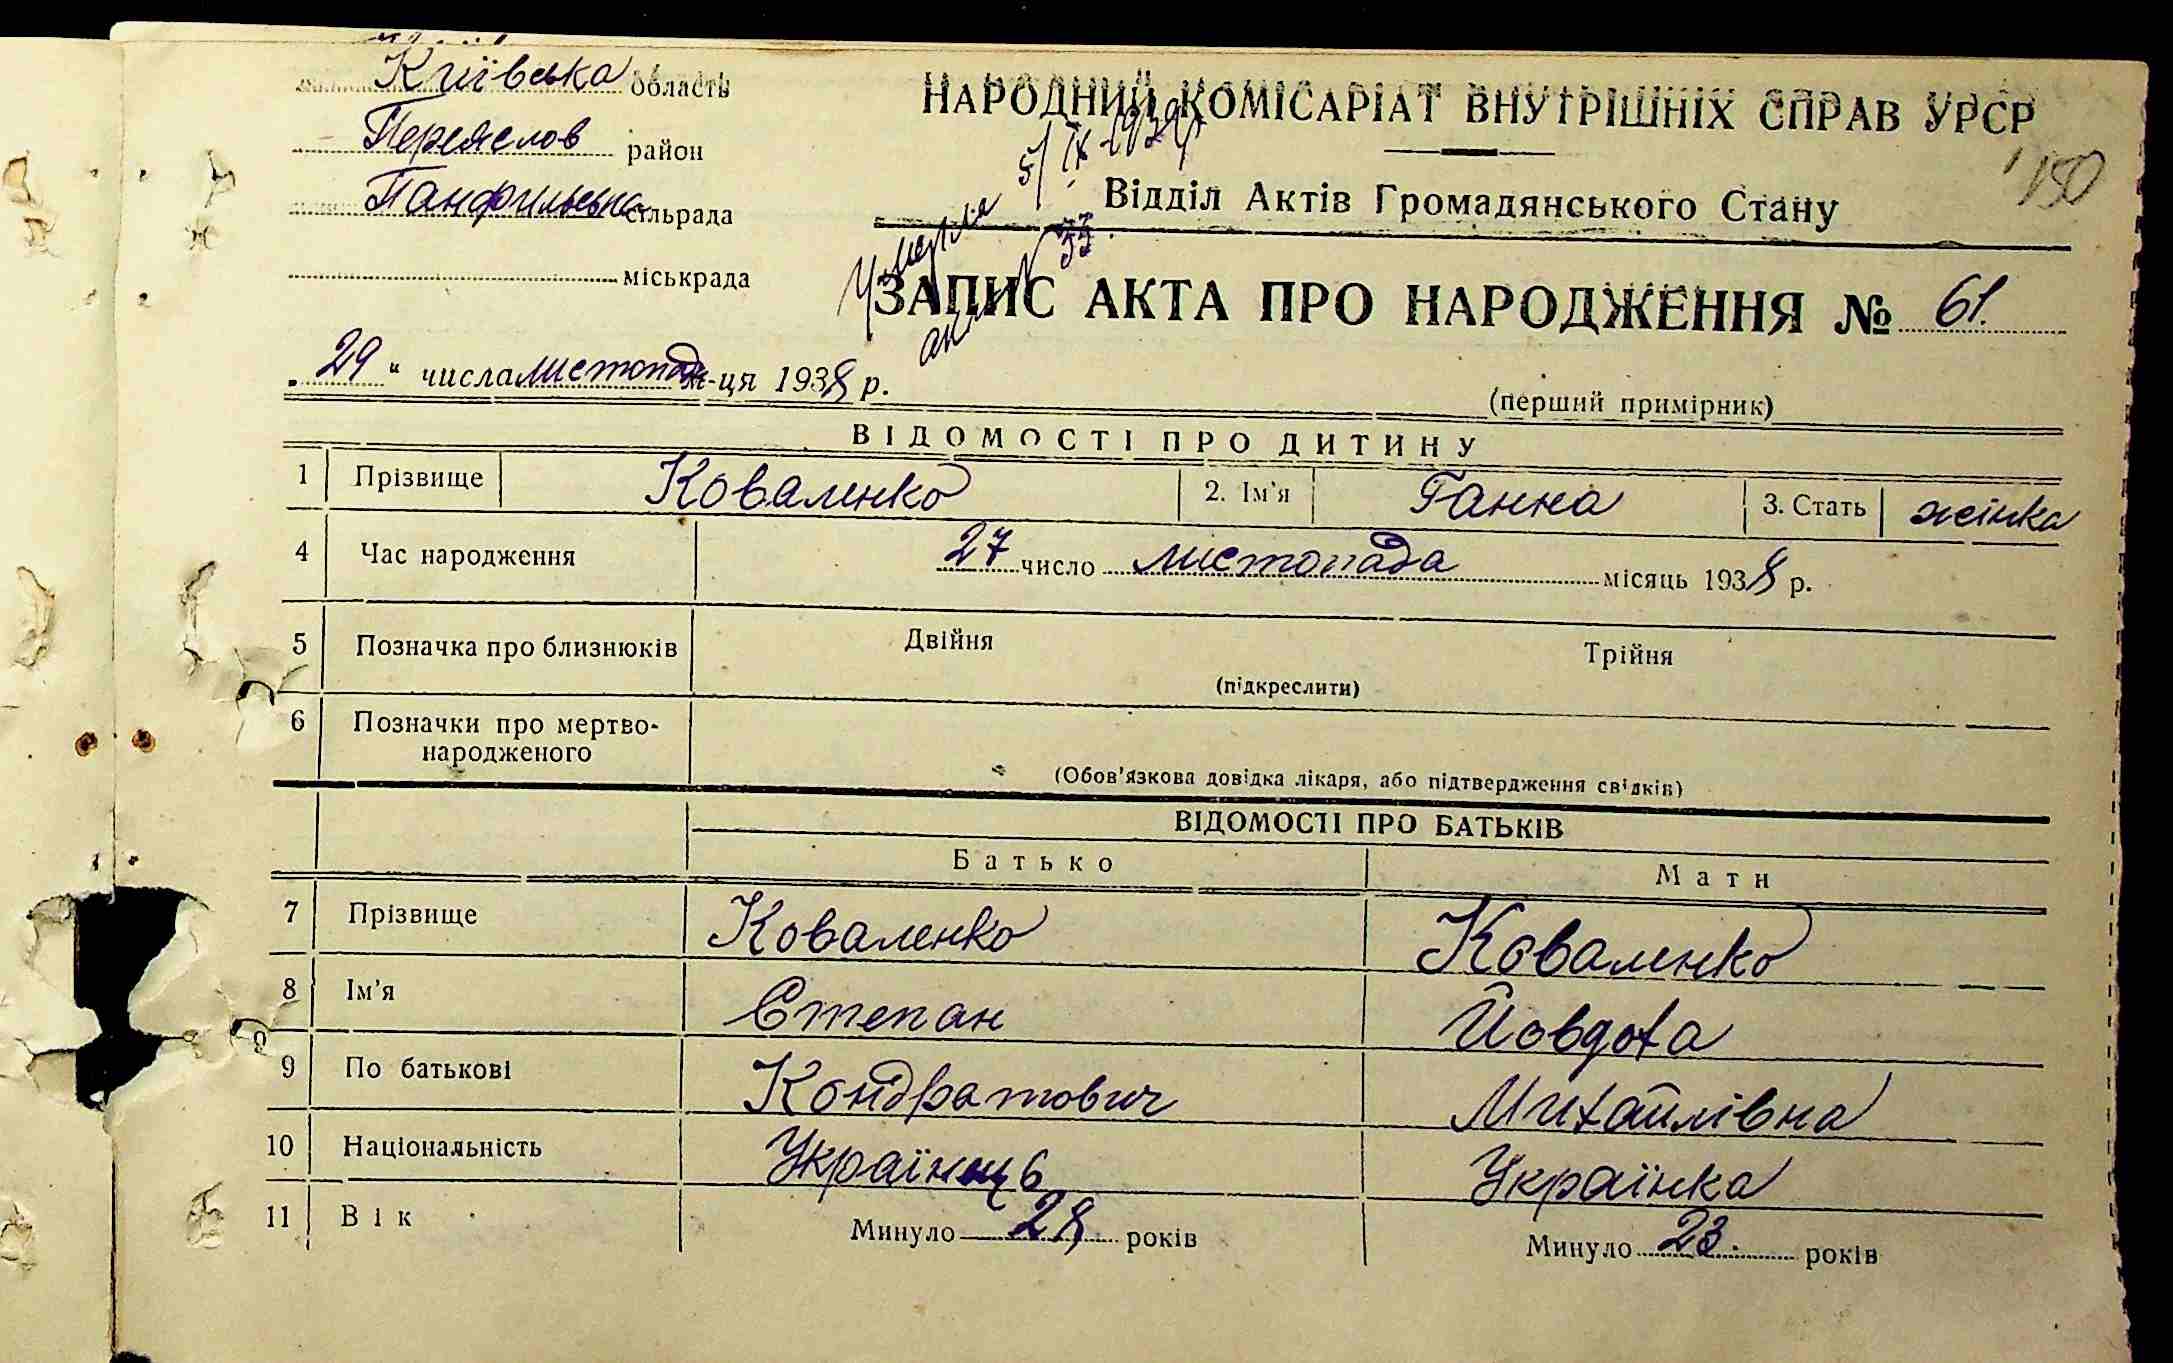 Київська область
Переяслов район
Панфильська сільрада
міськрада
НАРОДНИЙ КОМІСАРІАТ ВНУТРІШНІХ СПРАВ УРСР
150
Відділ Актів Громадянського Стану
Умерла 5/IX-1939р
акт № 33
ЗАПИС АКТА ПРО НАРОДЖЕННЯ № 61.
„29“ числа листопада м-ця 1938 р.
(перший примірник)
ВІДОМОСТІ ПРО ДИТИНУ
1 Прізвище Коваленко 2. Ім'я Ганна 3. Стать жінка
4 Час народження 27 число листопада місяць 1938 р.
5 Позначка про близнюків Двійня Трійня
(підкреслити)
6 Позначки про мертво-
народженого
(Обов'язкова довідка лікаря, або підтвердження свідків)
ВІДОМОСТІ ПРО БАТЬКІВ
Батько Мати
7 Прізвище Коваленко Коваленко
8 Ім'я Степан Йовдоха
9 По батькові Кондратович Михайлівна
10 Національність Українець Українка
11 Вік Минуло 28 років Минуло 23. років